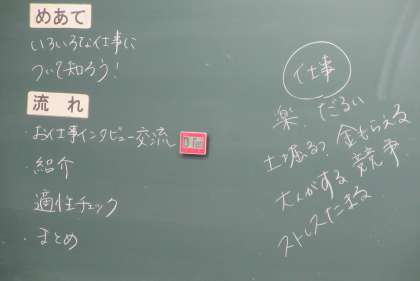 めあて
いろいろな仕事に
ついて知ろう!
流れ
・お仕事インタビュー交流
・紹介
・適性チェック
・まとめ
仕事
楽、だるい
土掘る?金もらえる
大人がする 競争
ストレスたまる